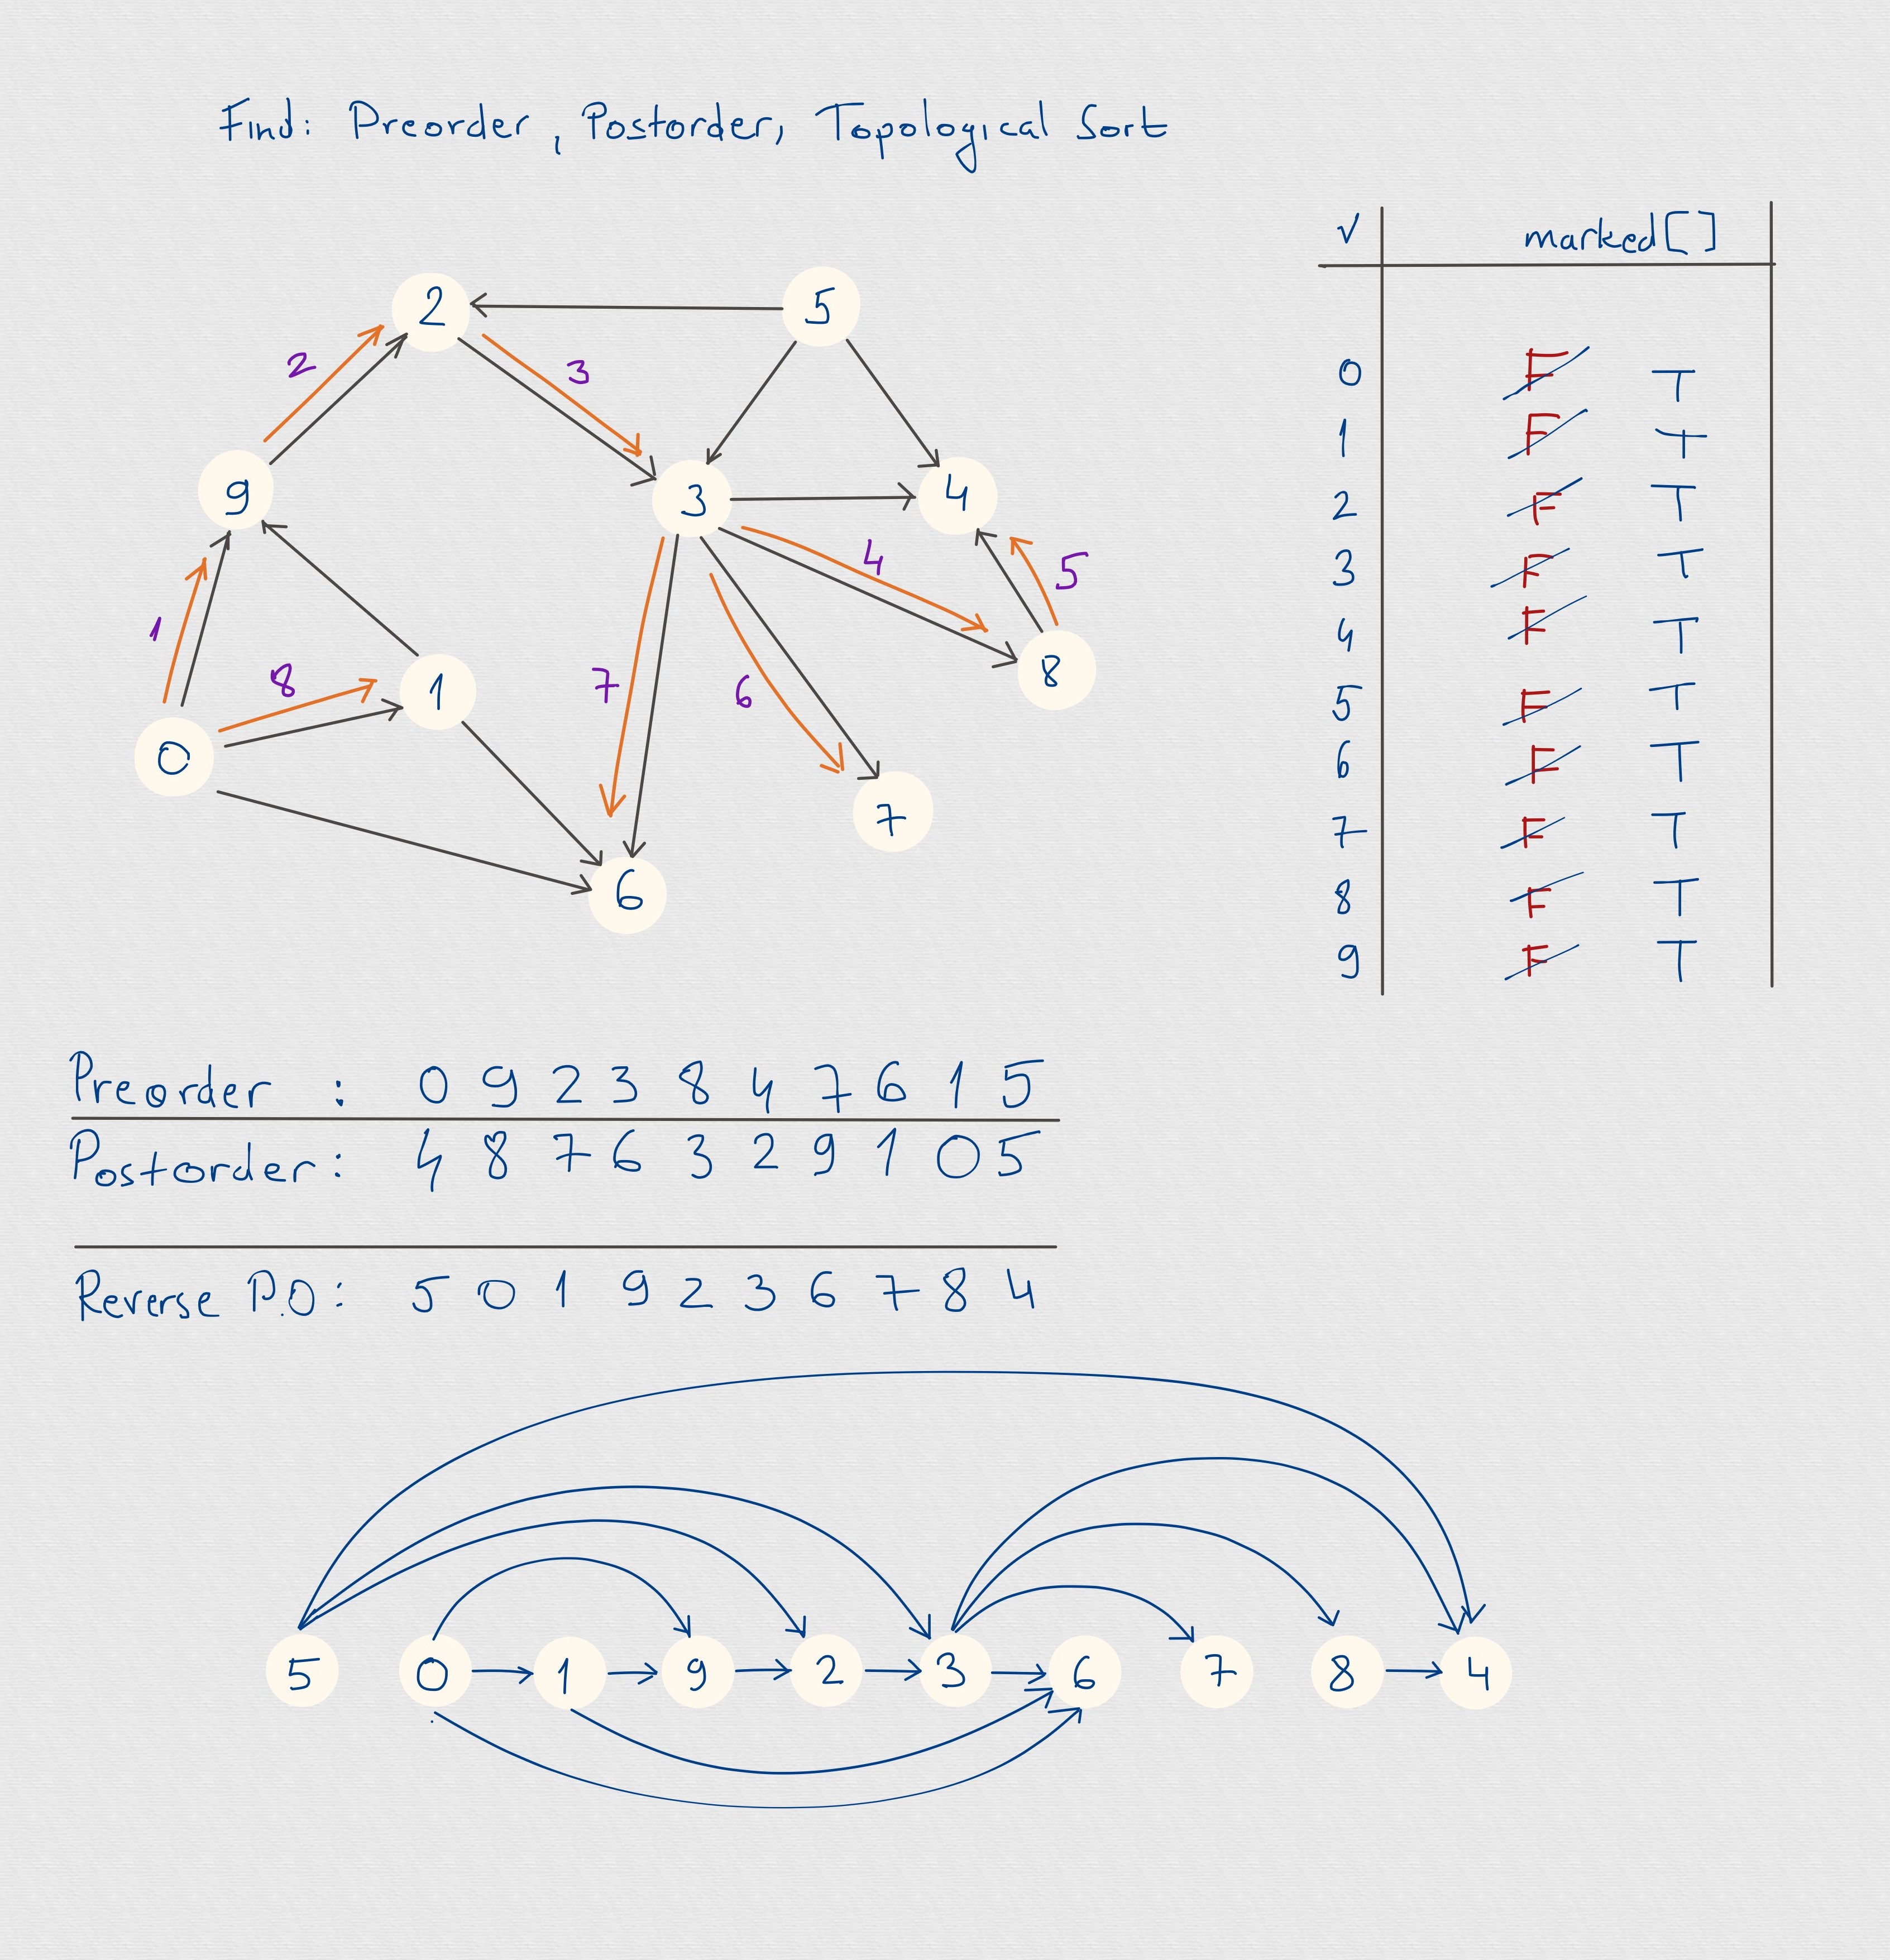 Find: Preorder, Postorder, Topological Sort
V marked[]
2 5
2 3
9 3 4
4 5
1
8 1 7 6 8
0
7
6
0 F T
1 F T
2 F T
3 F T
4 F T
5 F T
6 F T
7 F T
8 F T
9 F T
Preorder : 0 9 2 3 8 4 7 6 1 5
Postorder: 4 8 7 6 3 2 9 1 0 5
Reverse P.O: 5 0 1 9 2 3 6 7 8 4
5 0 1 9 2 3 6 7 8 4